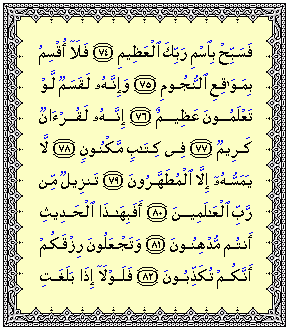 فَسَبِّحْ بِٱسْمِ رَبِّكَ ٱلْعَظِيمِ ﴿٧٤﴾ فَلَآ أُقْسِمُ
بِمَوَٰقِعِ ٱلنُّجُومِ ﴿٧٥﴾ وَإِنَّهُۥ لَقَسَمٌ لَّوْ
تَعْلَمُونَ عَظِيمٌ ﴿٧٦﴾ إِنَّهُۥ لَقُرْءَانٌ
كَرِيمٌ ﴿٧٧﴾ فِى كِتَٰبٍ مَّكْنُونٍ ﴿٧٨﴾ لَّا
يَمَسُّهُۥٓ إِلَّا ٱلْمُطَهَّرُونَ ﴿٧٩﴾ تَنزِيلٌ مِّن
رَّبِّ ٱلْعَٰلَمِينَ ﴿٨٠﴾ أَفَبِهَٰذَا ٱلْحَدِيثِ
أَنتُم مُّدْهِنُونَ ﴿٨١﴾ وَتَجْعَلُونَ رِزْقَكُمْ
أَنَّكُمْ تُكَذِّبُونَ ﴿٨٢﴾ فَلَوْلَآ إِذَا بَلَغَتِ